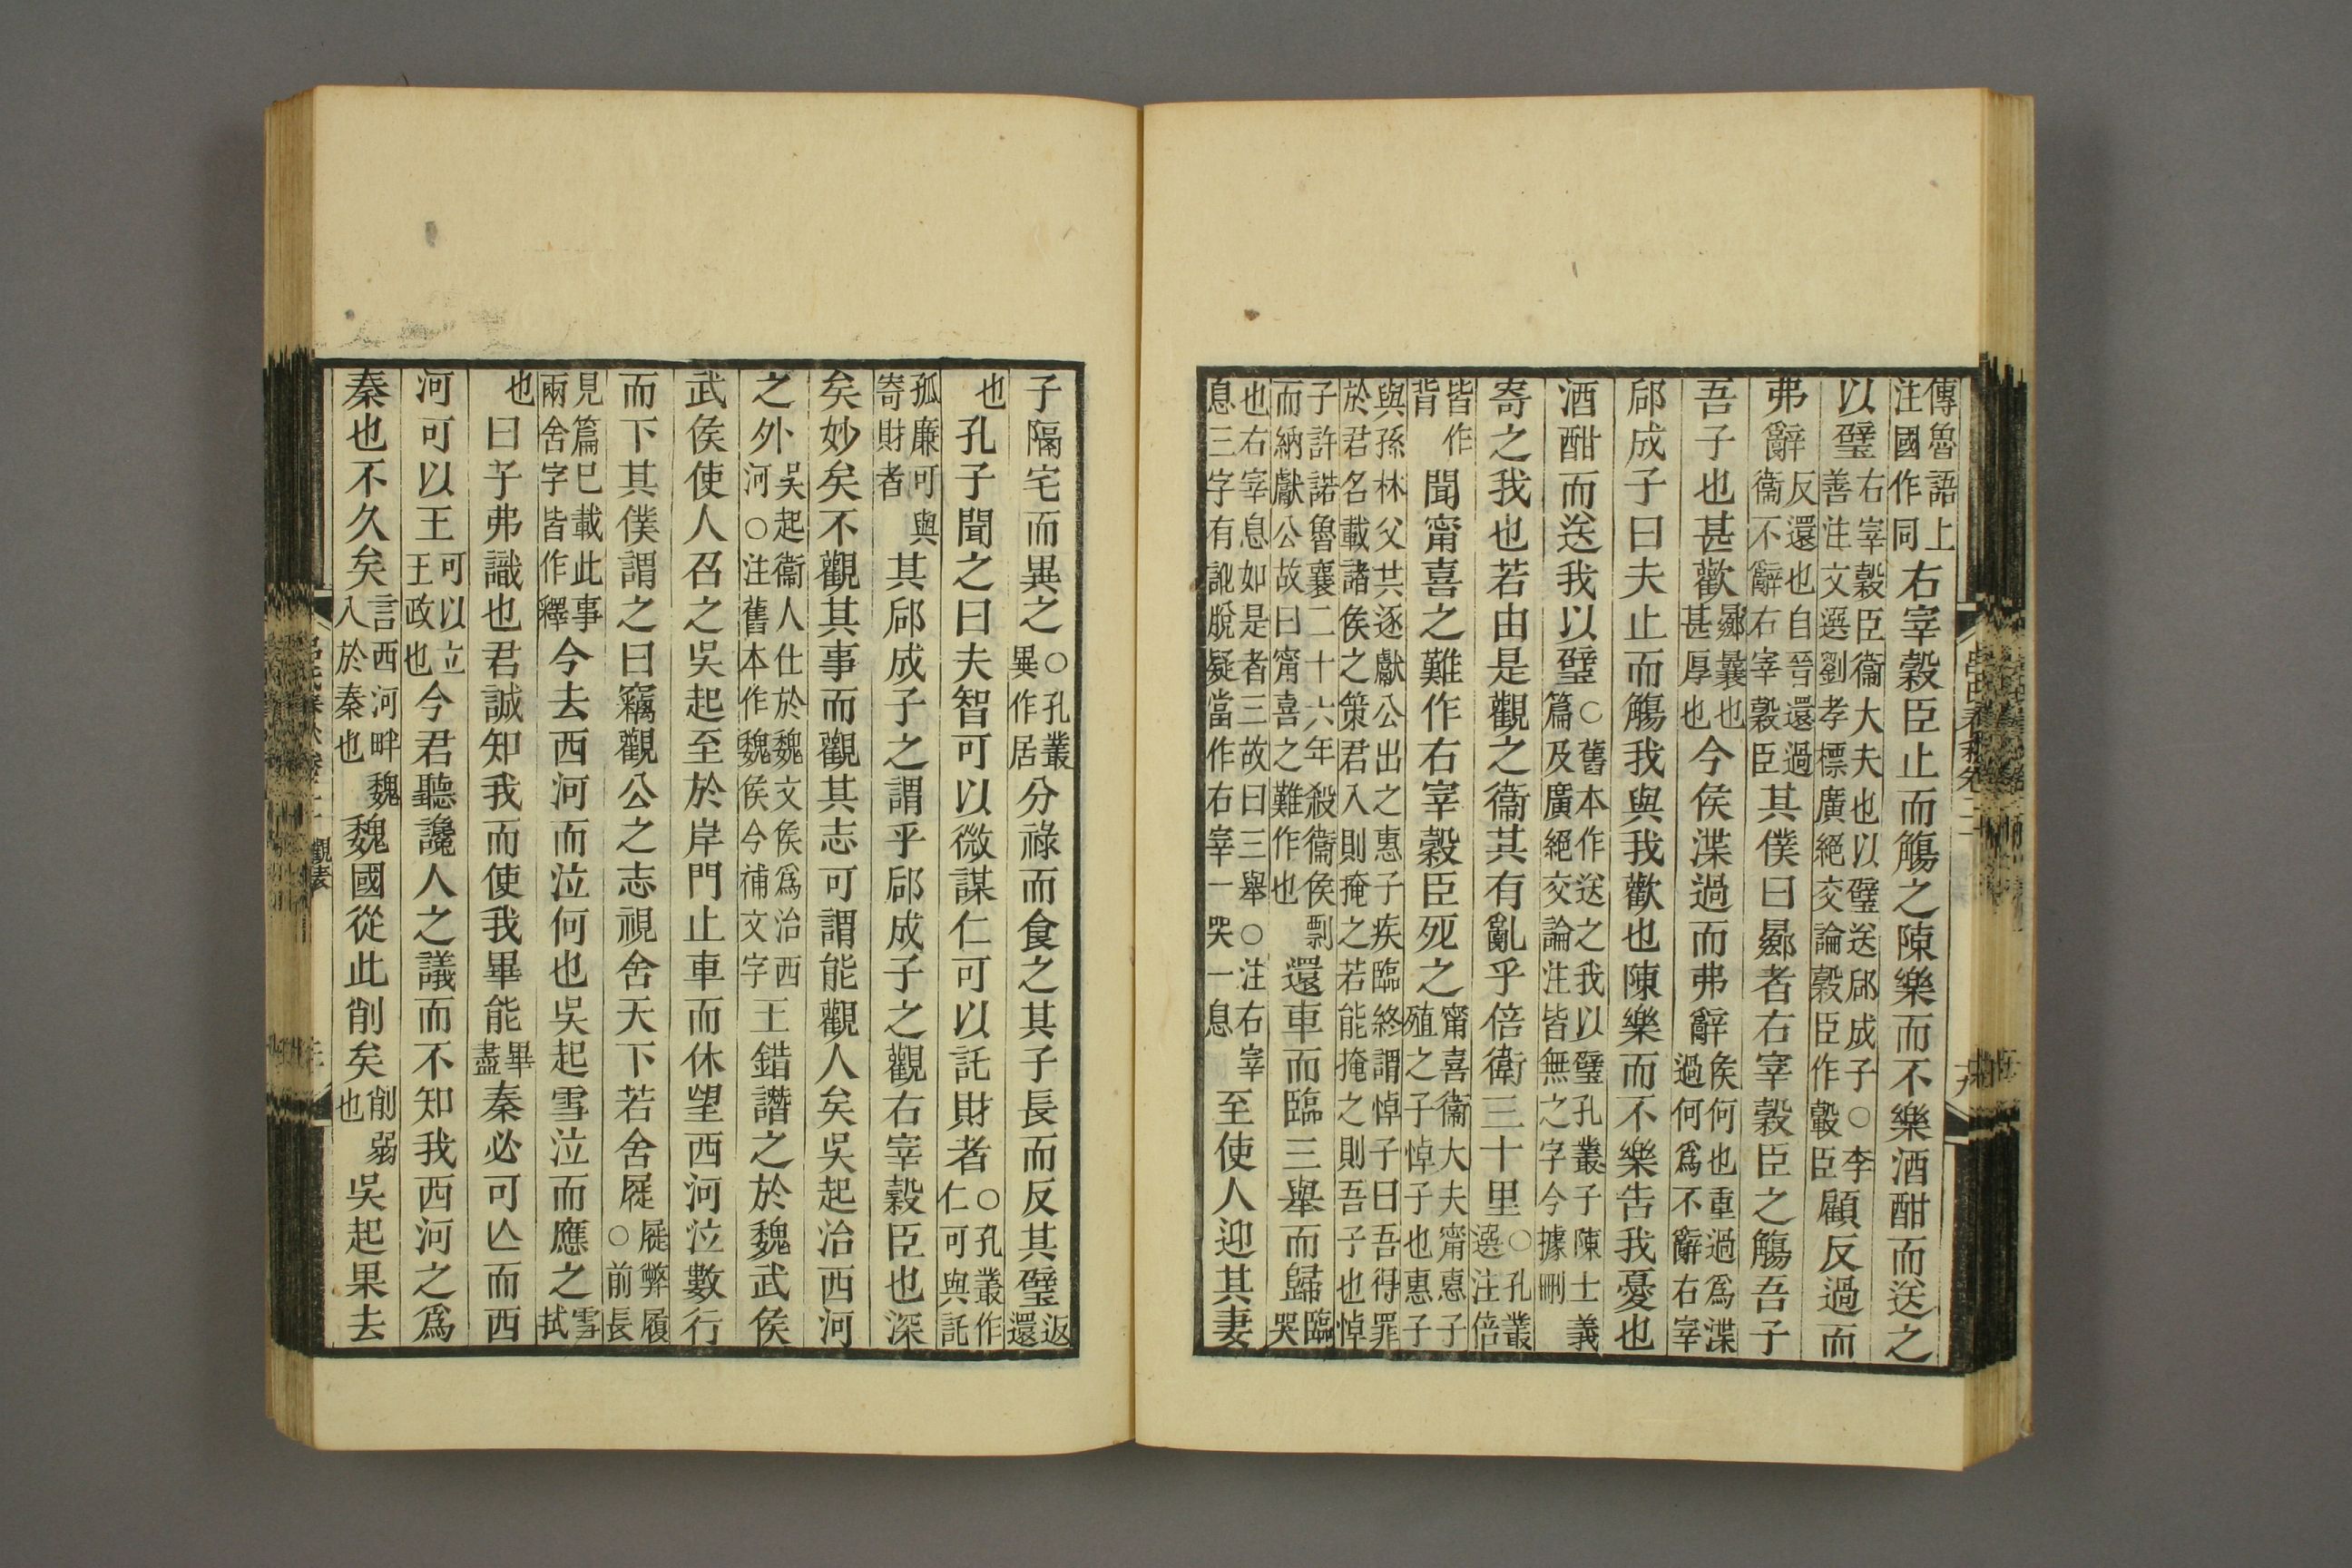 傳魯語上注國作同右宰穀臣止而觴之陳樂而不樂酒酣而送之
以璧右宰穀臣衞大夫也以璧送郈成子○李善注文選劉孝標廣絕交論穀臣作轂臣顧反過而
弗辭反還也自晉還過衞不辭右宰穀臣其僕曰曏者右宰穀臣之觴吾子
吾子也甚歡曏曩也甚厚也今侯渫過而弗辭侯何也重過爲渫過何爲不辭右宰
郈成子曰夫止而觴我與我歡也陳樂而不樂吿我憂也
酒酣而送我以璧○舊本作送之我以璧孔叢子陳士義篇及廣絕交論注皆無之字今據刪
寄之我也若由是觀之衞其有亂乎倍衞三十里○孔叢選注倍
皆作背聞甯喜之難作右宰穀臣死之甯喜衞大夫甯惠子殖之子悼子也惠子
與孫林父共逐獻公出之惠子疾臨終謂悼子曰吾得罪於君名載諸侯之策君入則掩之若能掩之則吾子也悼
子許諾魯襄二十六年殺衞侯剽而納獻公故曰甯喜之難作也還車而臨三舉而歸臨哭
也右宰息如是者三故曰三舉○注右宰息三字有訛脫疑當作右宰一哭一息至使人迎其妻
子隔宅而異之○孔叢異作居分祿而食之其子長而反其璧返還
也孔子聞之曰夫智可以微謀仁可以託財者○孔叢作仁可與託
孤廉可與寄財者其郈成子之謂乎郈成子之觀右宰穀臣也深
矣妙矣不觀其事而觀其志可謂能觀人矣吳起治西河
之外吳起衞人仕於魏文侯爲治西河○注舊本作魏侯今補文字王錯譖之於魏武侯
武侯使人召之吳起至於岸門止車而休望西河泣數行
而下其僕謂之曰竊觀公之志視舍天下若舍屣屣弊履○前長
見篇已載此事兩舍字皆作釋今去西河而泣何也吳起雪泣而應之雪拭
也曰子弗識也君誠知我而使我畢能畢盡秦必可亾而西
河可以王可以立王政也今君聽讒人之議而不知我西河之爲
秦也不久矣言西河畔魏入於秦也魏國從此削矣削弱也吳起果去
觀表